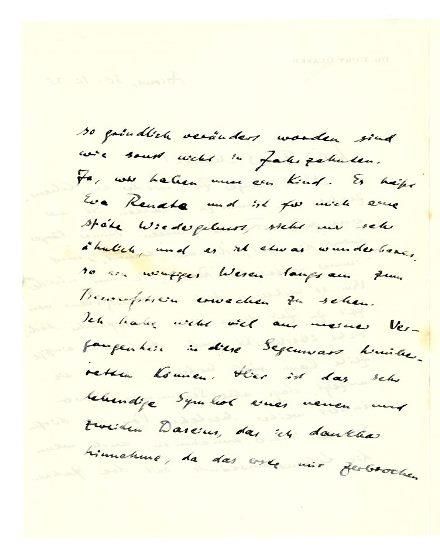 so gründlich verändert worden sind
wie sonst nicht in Jahrzehnten.
Ja, wir haben nun ein Kind. Es heißt
Eva Renate und ist für mich eine
späte Wiedergeburt, sieht mir sehr
ähnlich, und es ist etwas wunderbares,
so ein winziges Wesen langsam zum
Bewusstsein erwachen zu sehen.
Ich habe nicht viel aus meiner Ver-
gangenheit in diese Gegenwart hinüber-
retten können. Hier ist das sehr
lebendige Symbol eines neuen und
zweiten Daseins, das ich dankbar
hinnehme, da das erste mir zerbrochen